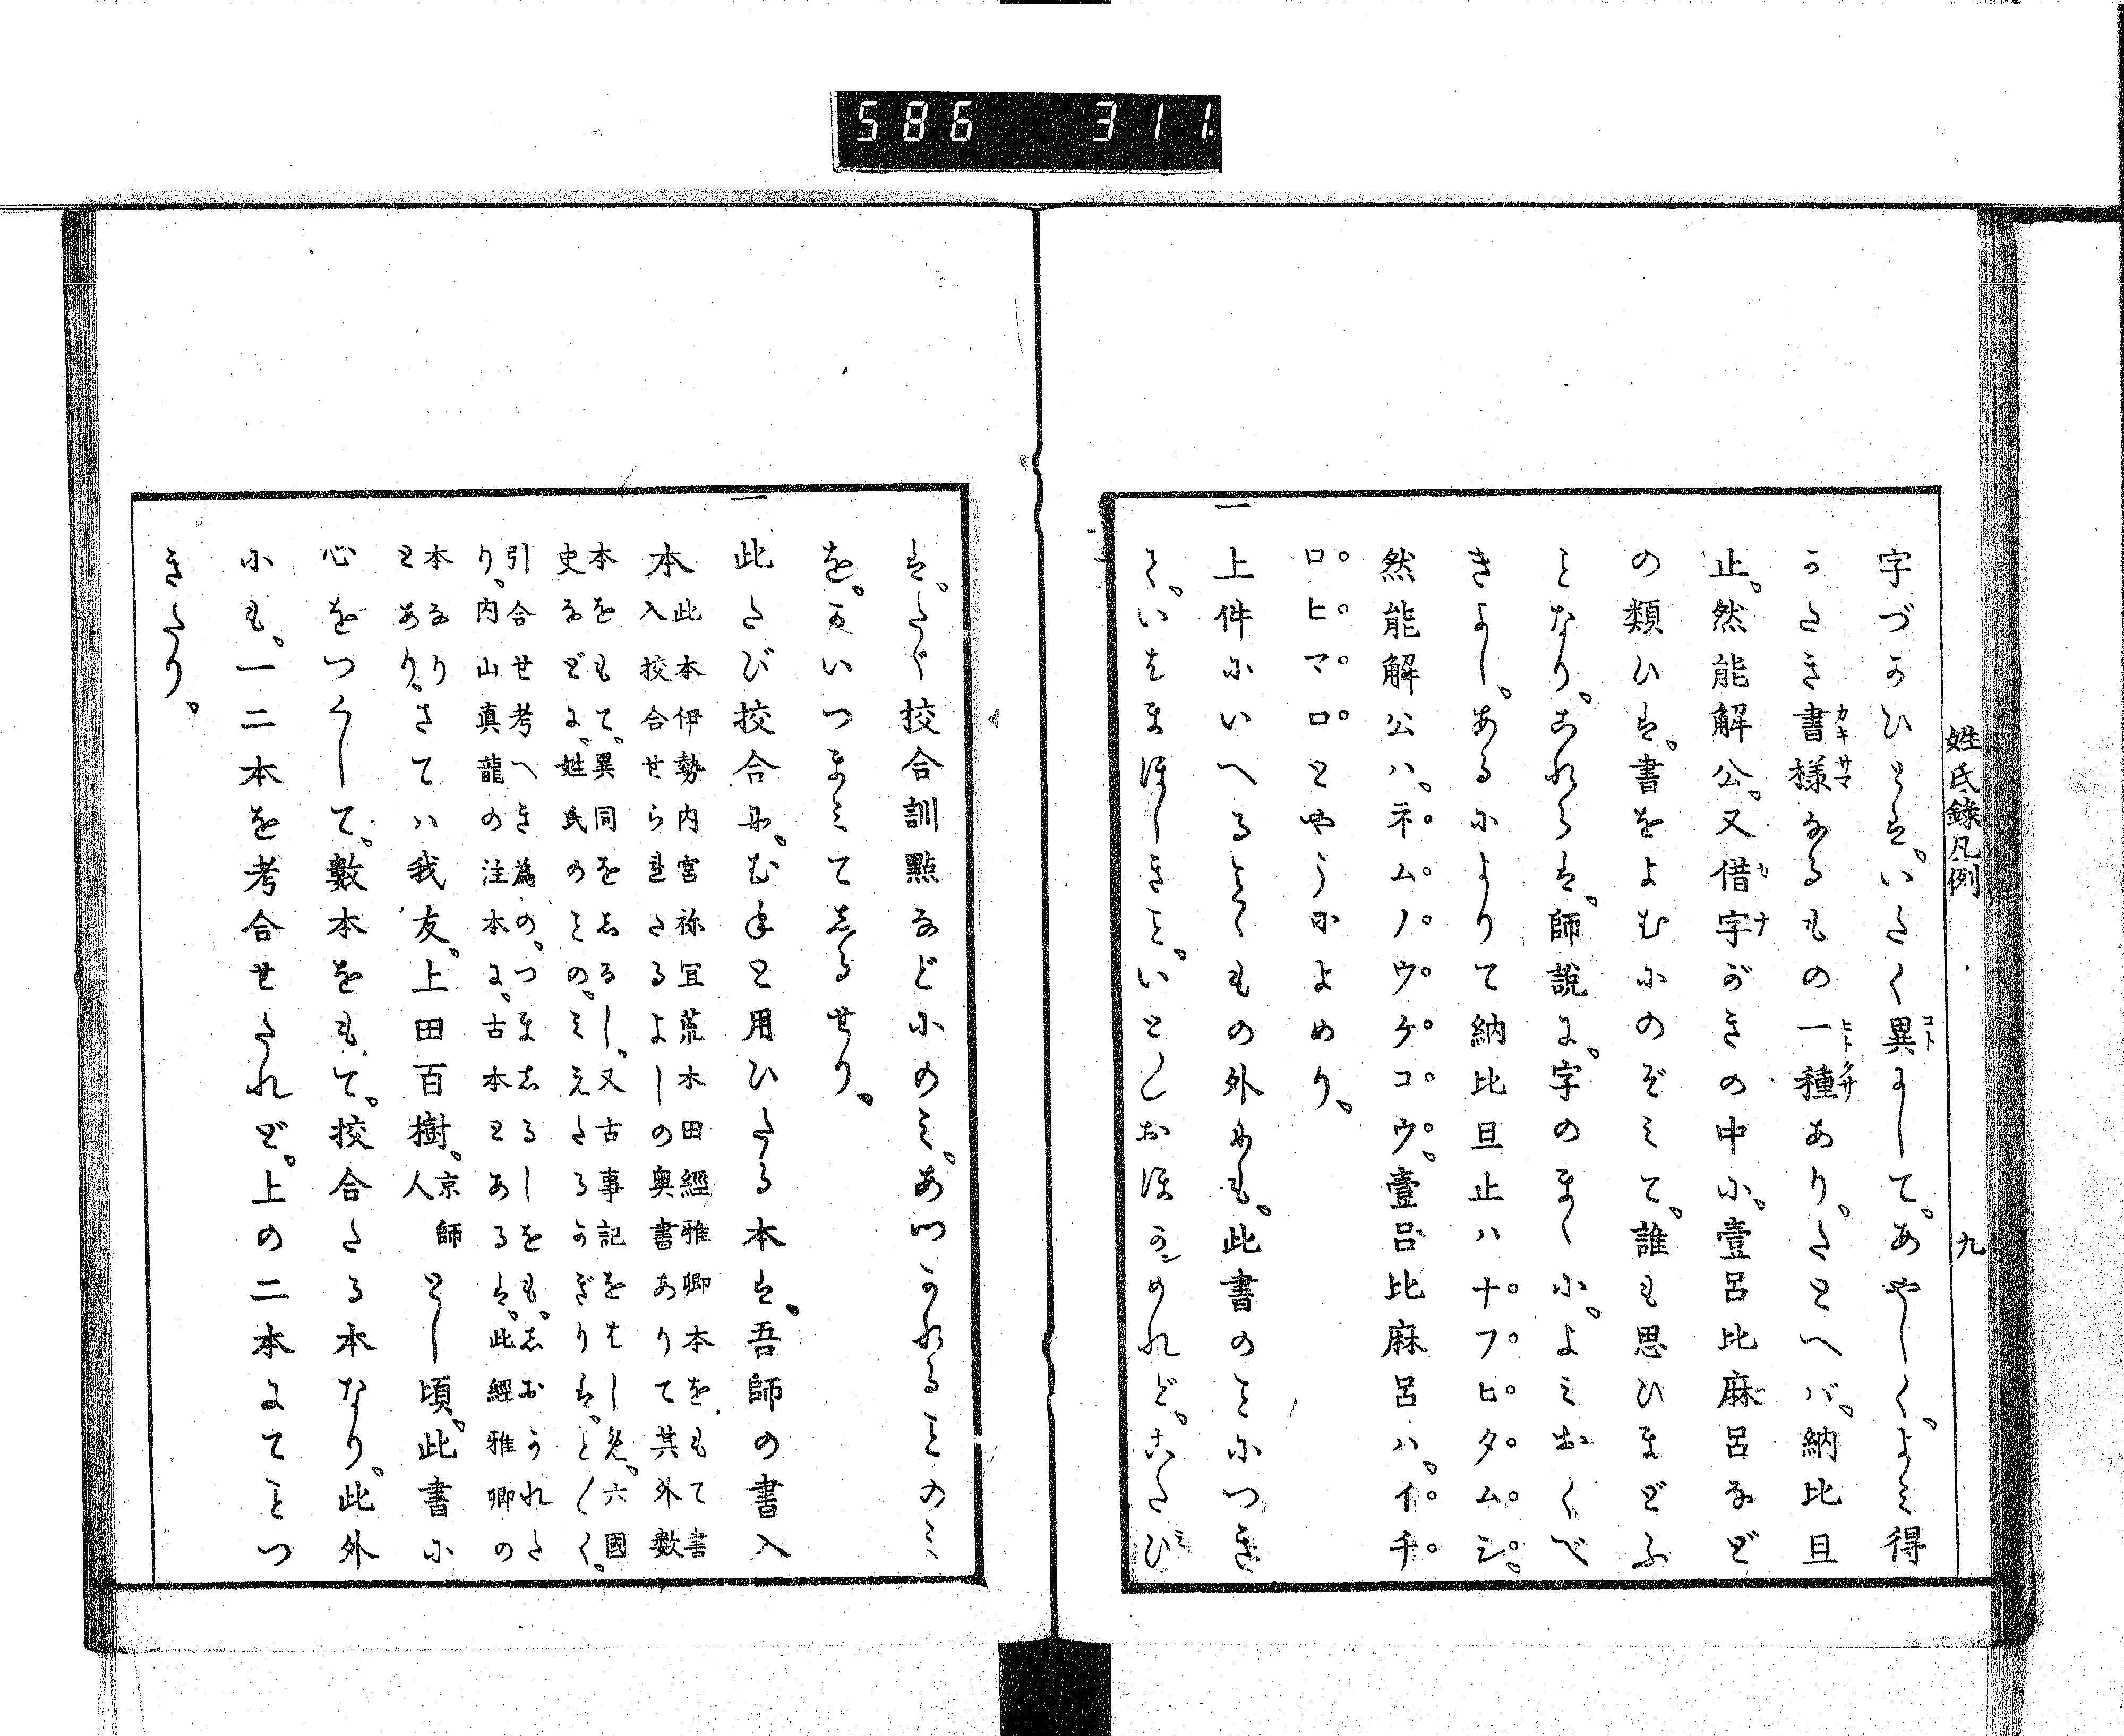 586 311
姓氏錄凡例 九
字づかひとは、いたく異にして、あやしく、よミ得
かたき書様なるもの一種あり、たとヘバ、納比旦
止、然能解公、又借字がきの中に、壹呂比麻呂など
の類ひは、書をよむにのぞミて、誰も思ひまどふ
ことなり、これらは、師説に、字のまゝに、よミおくべ
きよし、あるによりて納比旦止ハナフヒタムシ、
然能解公ハ、ネムノウケコウ、壹呂比麻呂ハ、イチ
ロヒマロとやうによめり、
一上件にいへるところもの外にも、此書のことにつき
て、いはまほしきこと、いと〳〵おほかめれど、こたび
は、たゞ挍合訓點などにのミ、あつかれることのミ
を、かいつまミてしるせり、
一此たび挍合に、むねと用ひたる本は、吾師の書入
本 此本伊勢内宮祢宜荒木田經雅卿本をもて書
入挍合せられたるよしの奥書ありて其外數
本をもて、異同をしるし、又古事記をはしめ、六國
史などに、姓氏のことの、ミえたるかぎりは、こと〴〵く、
引合せ考へき為の、つましるしをも、しおかれた
り、内山真龍の注本に、古本とあるは、此經雅卿の
本なり
とあり、さてハ我友、上田百樹、京師人 とし頃、此書に
心をつくして、數本をもて、挍合たる本なり、此外
にも、一二本を考合せたれど、上の二本にてことつ
きたり、